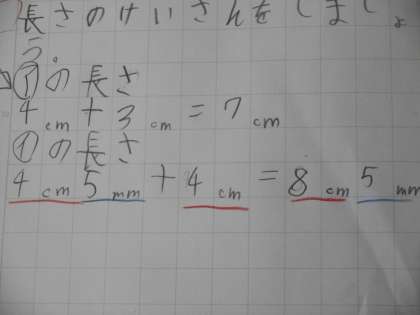 長さのけいさんをしましょ
う。
㋐の長さ
4cm+3cm=7cm
㋑の長さ
4cm5mm+4cm=8cm5mm